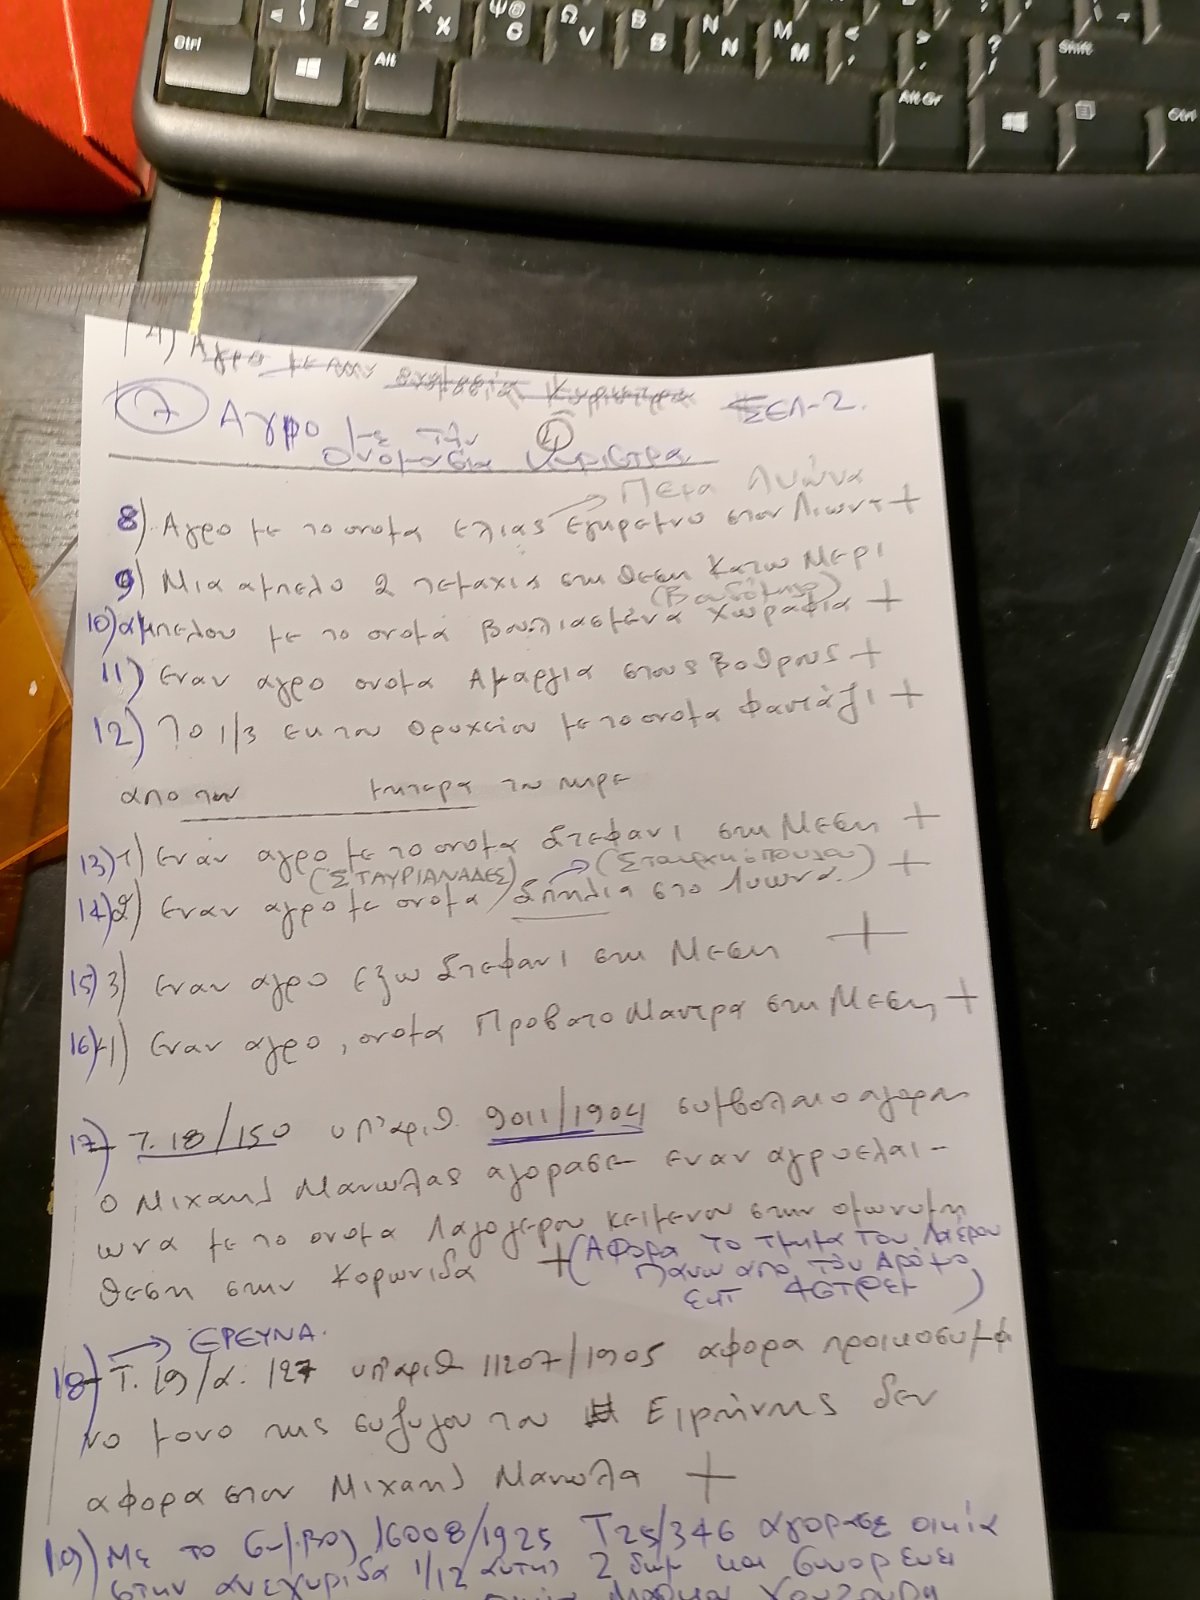 Ctrl Alt Alt Gr Shift Ctrl
Z X Ω V B B N N M M
7) Αγρο με την ΣΕΛ-2.
ονομασια
→ Πέτα Λυώνα
8) Αγρο με το ονομα ελιας εγκρεμνο στον Λιωνα +
9) Μια αμπελο 2 τεμαχια στη θεση Κατω Μερι
10) αμπελου με το ονομα βουλιασμένα χωραφια +
11) εναν αγρο ονομα Αμαργια στους Βοθρους +
12) Το 1/3 εκ του Ορυχείου με το ονομα Φαντάζι +
απο την μητερα του πηρε
13) 1) εναν αγρο με το ονομα Στεφανι στη Μεση +
(ΣΤΑΥΡΙΑΝΑΔΕΣ)
14) 2) εναν αγρο με ονομα Σπηλια στο Λυωνα. +
15) 3) εναν αγρο εξω Στεφανι στη Μεση +
16) 4) εναν αγρο, ονομα Προβατομαντρα στη Μεση +
17) Τ. 18/150 υπ αριθ. 9011/1904 συμβολαιο αγορας
ο Μιχαηλ Μανωλας αγορασε εναν αγροελαι-
ωνα με το ονομα Λαγογερου κειμενου στην ομωνυμη
θεση στην Κορωνιδα + (ΑΦορα το τμημα του Λαέρου
Πανω απο τον Δρόμο
)
→ ΕΡΕΥΝΑ.
18) Τ. 19/α. 127 υπ αριθ 11207/1905 αφορα προικοσυμφ
νο μονο της συζυγου του Ειρήνης δεν
αφορα στον Μιχαηλ Μανωλα +
19) Με το Συμβολ 16008/1925 Τ25/346 αγορασε οικία
στην ανεγυριδα 1/12 αυτης 2 δωμ και συνορευει